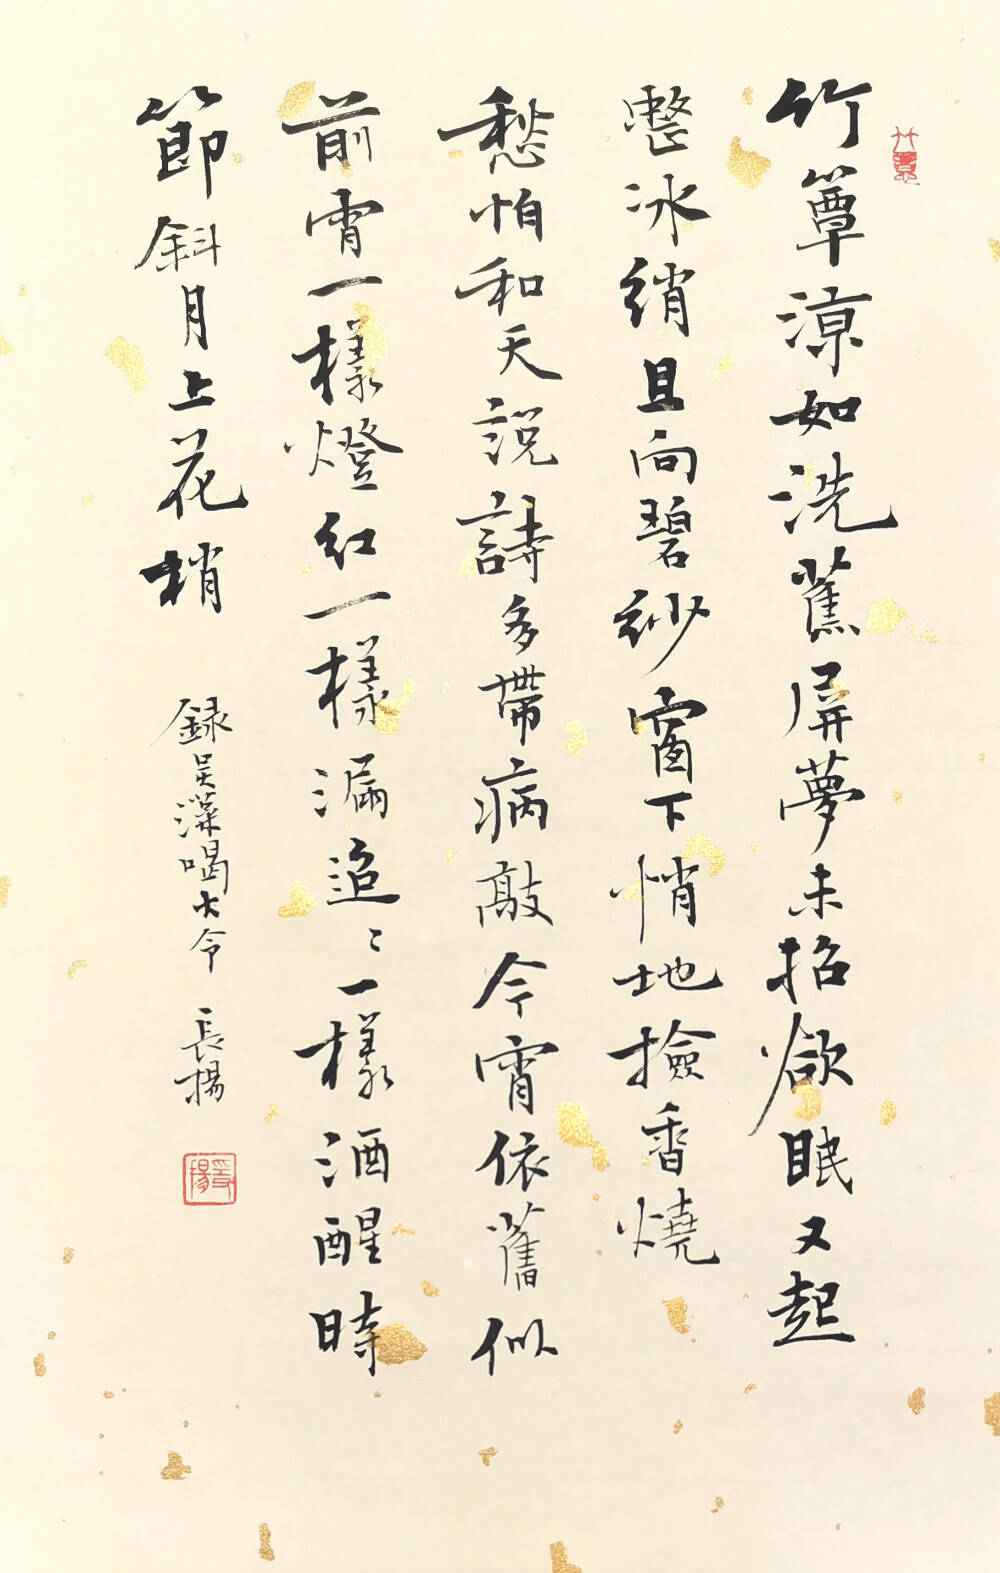 竹簟涼如洗蕉屏夢未招欲眠又起
整冰綃且向碧紗窗下悄地撿香燒
愁怕和天説詩多帶病敲今宵依舊似
前宵一樣燈紅一樣漏迢〻一樣酒醒時
節斜月上花梢
録吴藻喝火令 長揚